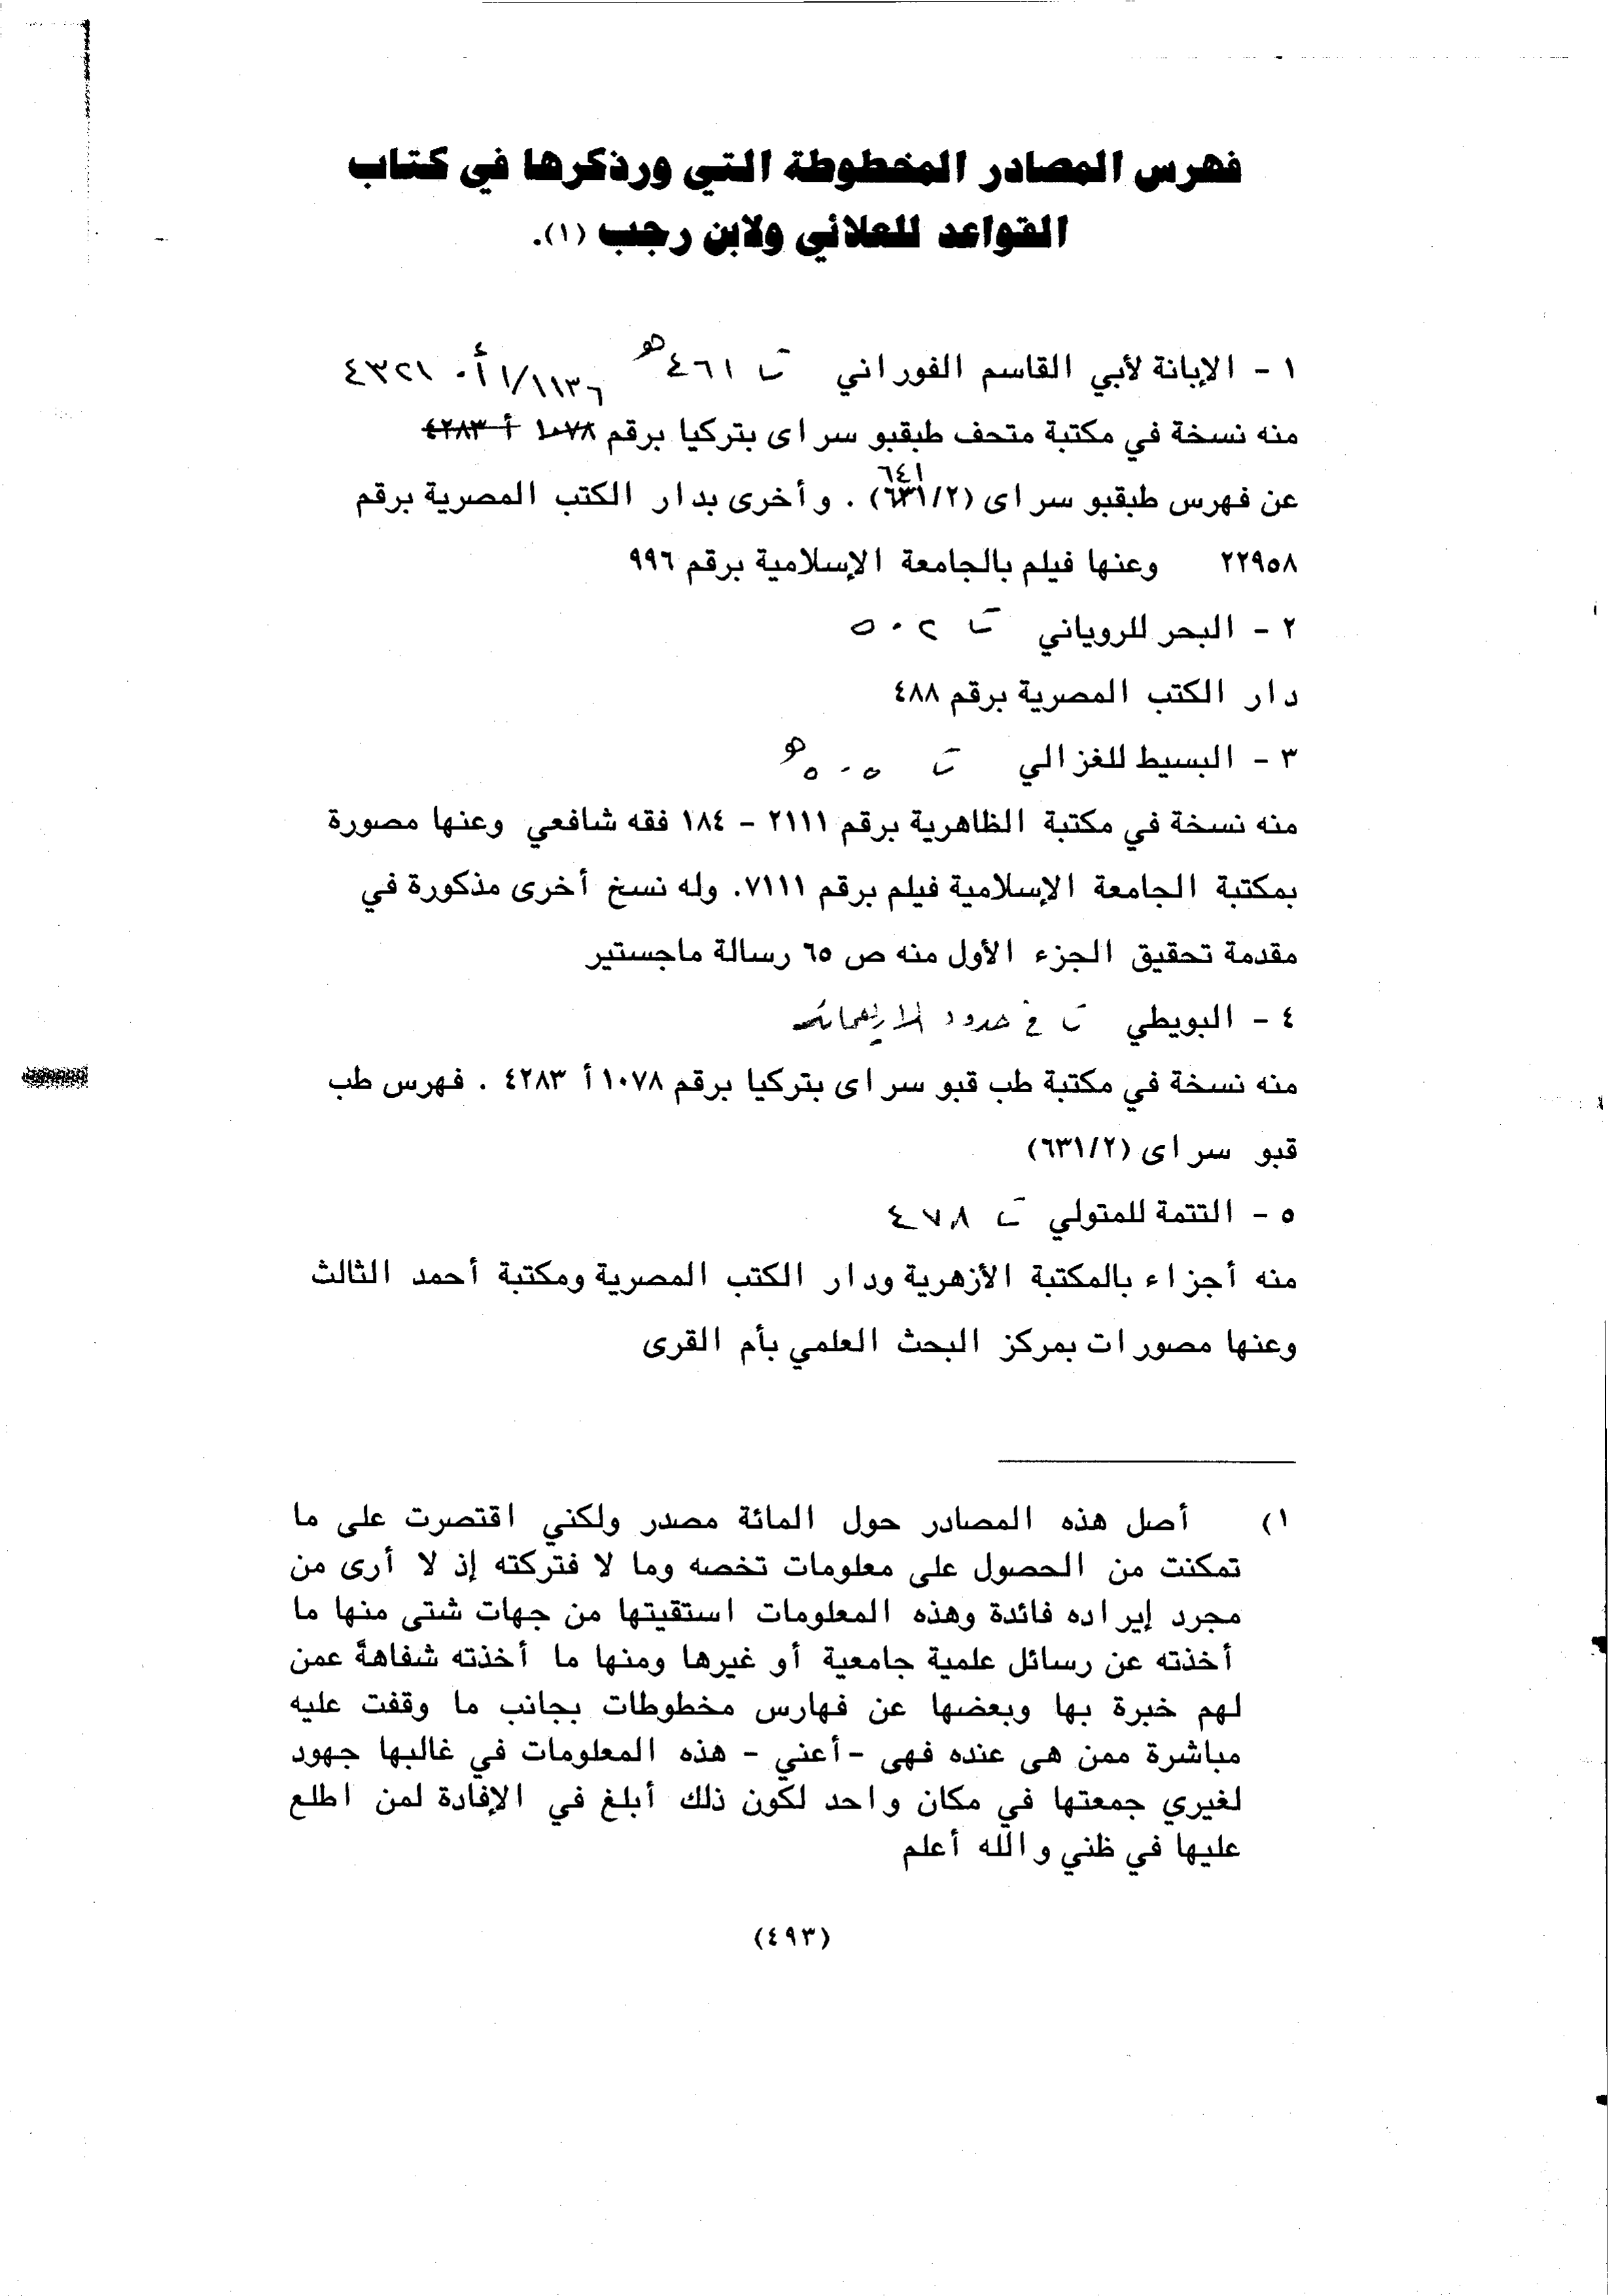 فهرس المصادر المخطوطة التي ورذكرها في كتاب
القواعد للعلائي ولابن رجب (١).
١ - الإبانة لأبي القاسم الفوراني ت ٤٦١ هـ ١١٣٦/١ أ ٤٣٢١
منه نسخة في مكتبة متحف طبقبو سراى بتركيا برقم ١٠٧٨ أ ٤٢٨٣
٦٤١
عن فهرس طبقبو سراى (٦٣١/٢) . وأخرى بدار الكتب المصرية برقم
٢٢٩٥٨ وعنها فيلم بالجامعة الإسلامية برقم ٩٩٦
٢ - البحر للروياني ت ٥٠٢
دار الكتب المصرية برقم ٤٨٨
٣ - البسيط للغزالي ت ٥٠٥ هـ
منه نسخة في مكتبة الظاهرية برقم ٢١١١ - ١٨٤ فقه شافعي وعنها مصورة
بمكتبة الجامعة الإسلامية فيلم برقم ٧١١١. وله نسخ أخرى مذكورة في
مقدمة تحقيق الجزء الأول منه ص ٦٥ رسالة ماجستير
٤ - البويطي ت في حدود الأربعمائة
منه نسخة في مكتبة طب قبو سراى بتركيا برقم ١٠٧٨ أ ٤٢٨٣ . فهرس طب
قبو سراى (٦٣١/٢)
٥ - التتمة للمتولي ت ٤٧٨
منه أجزاء بالمكتبة الأزهرية ودار الكتب المصرية ومكتبة أحمد الثالث
وعنها مصورات بمركز البحث العلمي بأم القرى
١) أصل هذه المصادر حول المائة مصدر ولكني اقتصرت على ما
تمكنت من الحصول على معلومات تخصه وما لا فتركته إذ لا أرى من
مجرد إيراده فائدة وهذه المعلومات استقيتها من جهات شتى منها ما
أخذته عن رسائل علمية جامعية أو غيرها ومنها ما أخذته شفاهةً عمن
لهم خبرة بها وبعضها عن فهارس مخطوطات بجانب ما وقفت عليه
مباشرة ممن هى عنده فهى -أعني - هذه المعلومات في غالبها جهود
لغيري جمعتها في مكان واحد لكون ذلك أبلغ في الإفادة لمن اطلع
عليها في ظني والله أعلم
(٤٩٣)